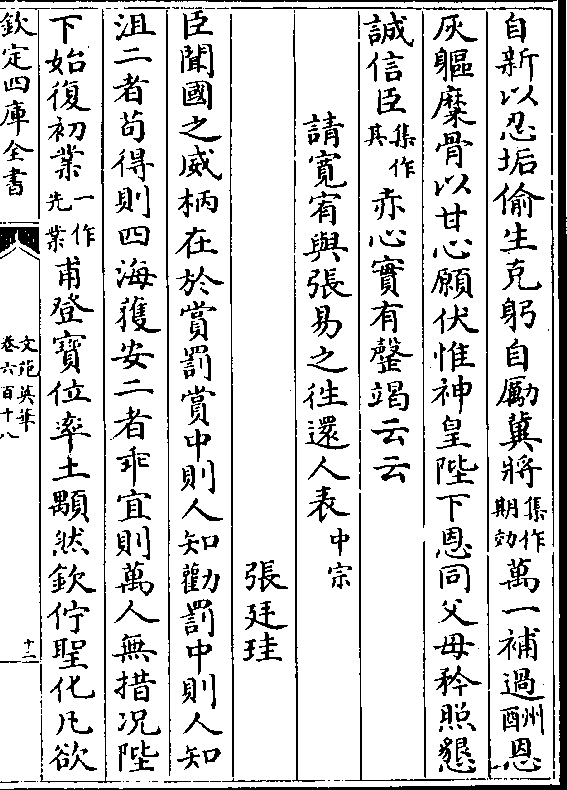 自新以忍垢偷生克躬自勵冀將集作期効萬一補過酬恩
灰軀糜骨以甘心願伏惟神皇陛下恩同父母矜照懇
誠信臣集作其赤心實有罄竭云云
請寛宥與張易之徃還人表中宗
張廷珪
臣聞國之威柄在於賞罰賞中則人知勸罰中則人知
沮二者苟得則四海獲安二者乖宜則萬人無措况陛
下始復初業一作先業甫登寶位率土顒然欽佇聖化凡欲
欽定四庫全書
文苑英華
卷六百十八
十二